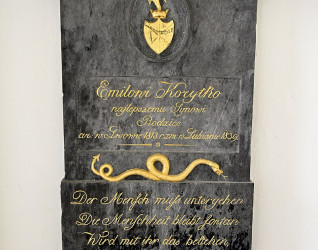 Emilowi Korytko
najlepszemu Synowi
Rodzice
ur. w Lwowie 1813. zm. w Lublanie 1839.
Der Mensch muß untergehen
Die Menschheit bleibt fortan
Wird mit ihr das bestehen